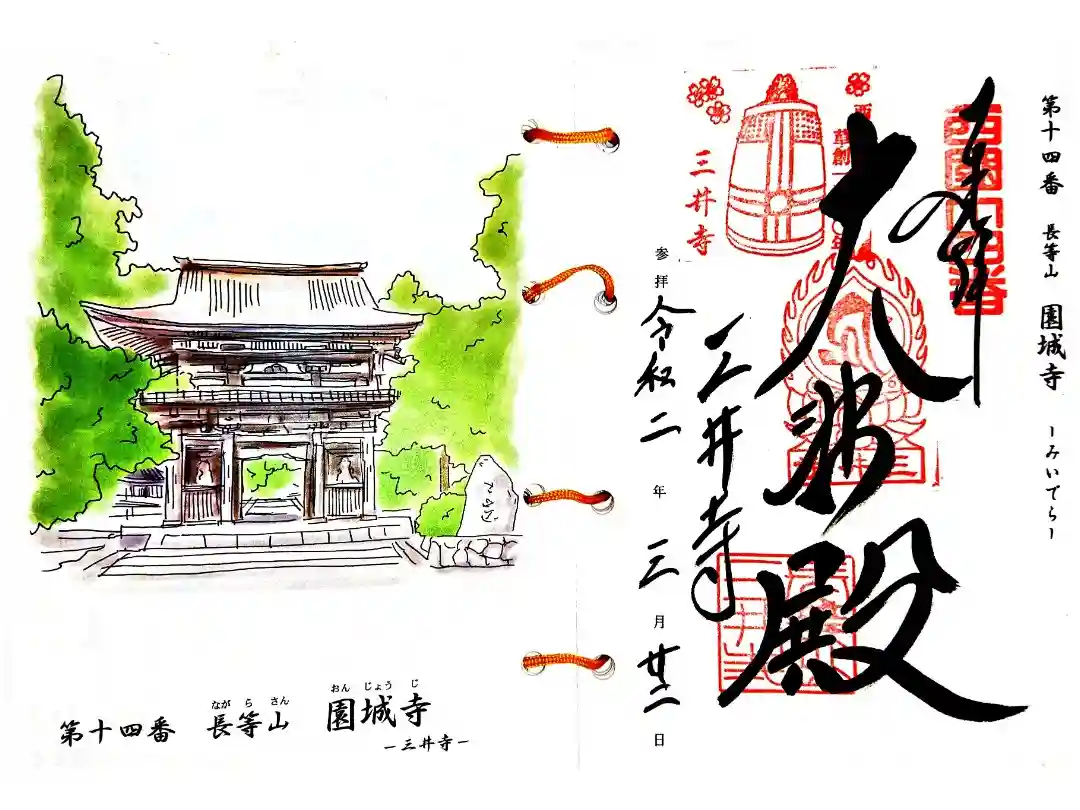 なが ら さん おん じょう じ
第十四番 長等山 園城寺
－三井寺－
第十四番 長等山 園城寺 －みいでらー
奉拝
西国十四番
大悲殿
三井寺
三井寺
参拝 令和二年三月廿二日